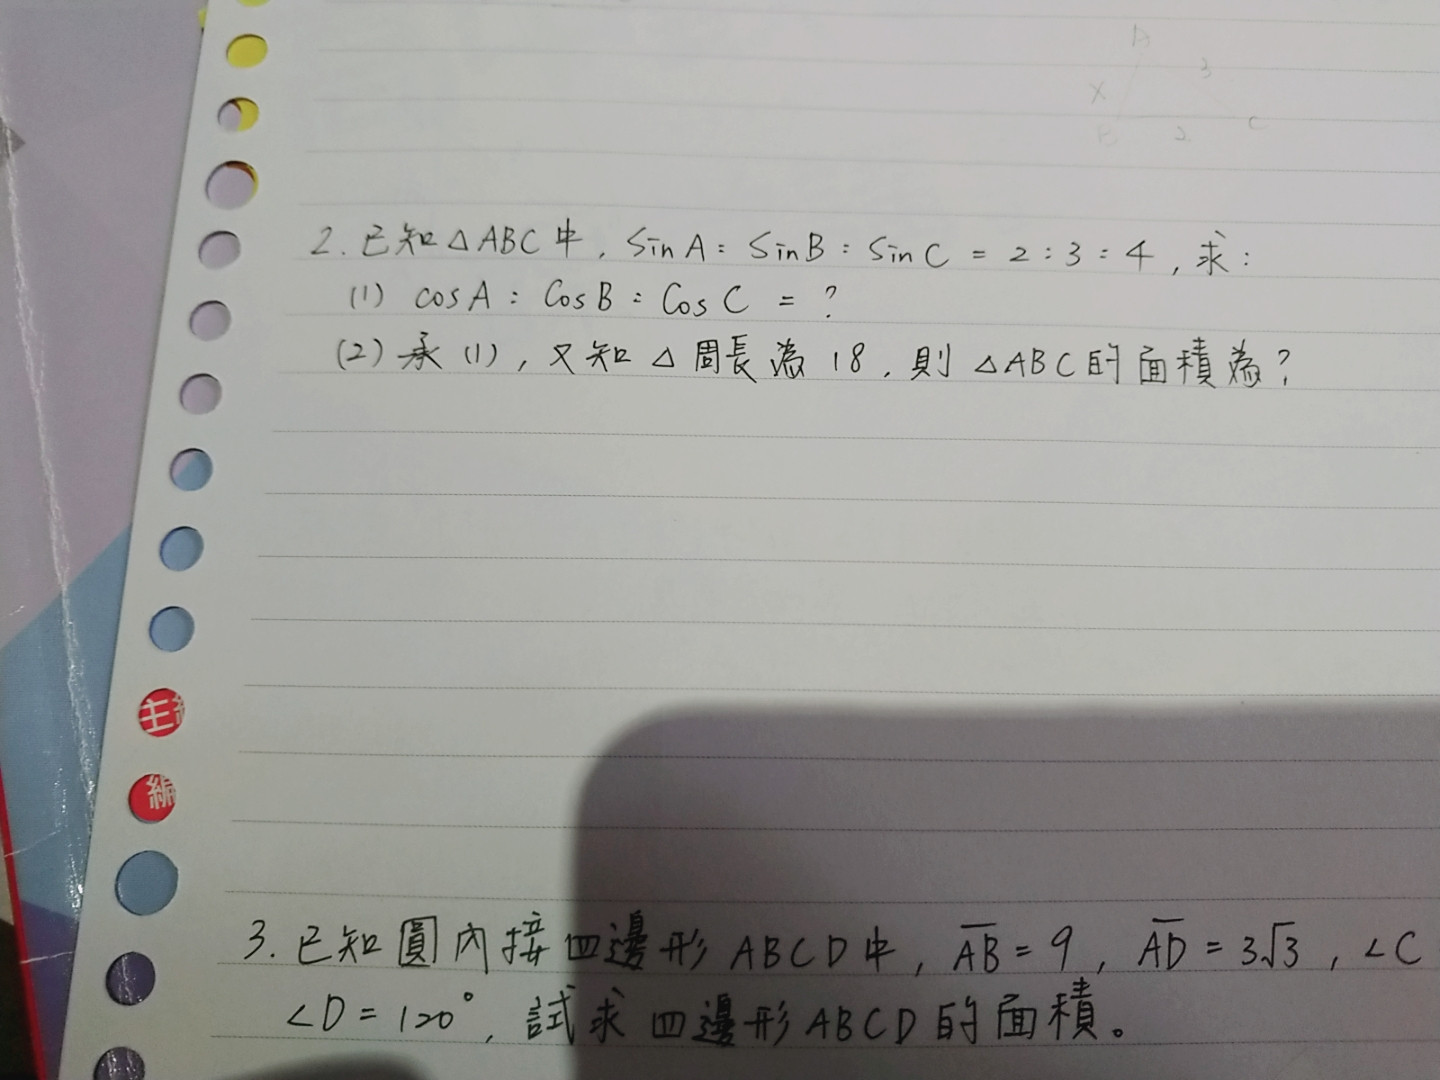 A
3
X
B 2 C
2. 已知△ABC中, sinA : sinB : sinC = 2 : 3 : 4, 求:
(1) cosA : cosB : cosC = ?
(2) 承(1), 又知△周長為18, 則△ABC的面積為?
主
編
3. 已知圓內接四邊形ABCD中, A̅B̅ = 9, A̅D̅ = 3√3, ∠C
∠D = 120°, 試求四邊形ABCD的面積。